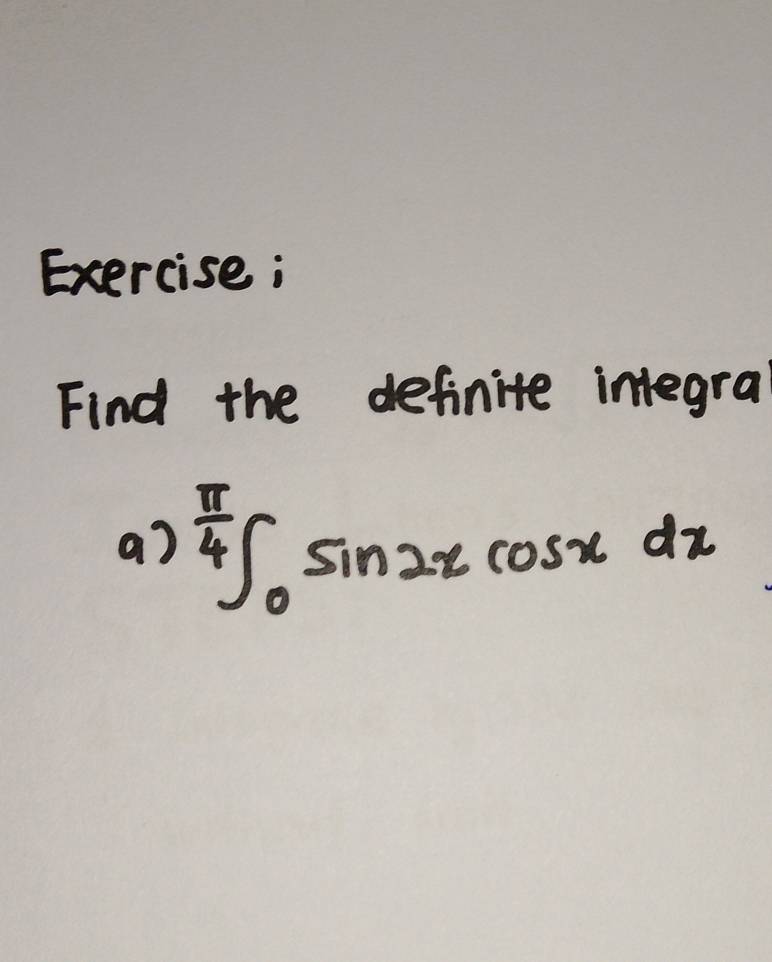 Exercise ;
Find the definite integral
a) π/4 ∫ 0 sin 2x cosx dx